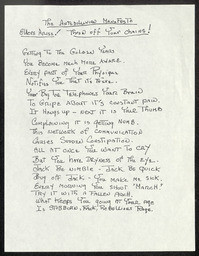 The Antediluvian Manifesto
Elders Arise! Throw off Your Chains!
Getting To the Golden Years
You Become Much More Aware
Every Part of Your Physique
Notifies You That It's There.
Your Big Toe Telephones Your Brain
To Gripe About It's Constant Pain.
It Hangs up - Next It Is Your Thumb
Complaining It Is Getting Numb.
This Network of Communication
Causes Sudden Constipation.
All at Once You Want To Cry
But You Have Dryness of the Eye.
Jack Be Nimble - Jack Be Quick
Buzz off Jack - You Make Me Sick.
Every Morning You Shout "March!"
Try It With a Fallen Arch.
What Keeps You Going at Your Age
Is Stubborn, Rebellious Rage.